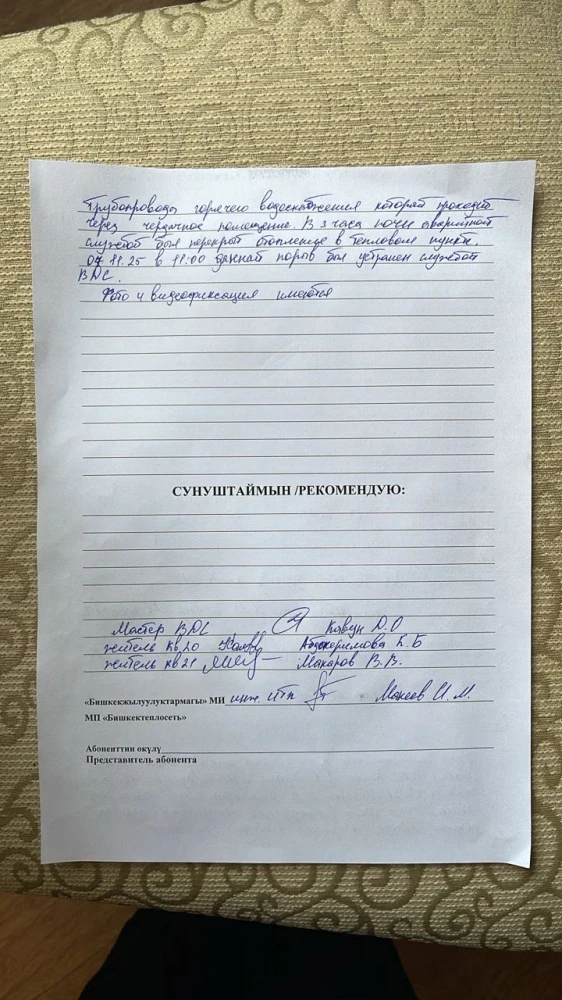 Трубопровода горячего водоснабжения который проходит
через чердачное помещение. В 3 часа ночи аварийной
службой был перекрыт отопление в тепловом пункте.
07.11.25 в 11:00 данный порыв был устранен службой
ВДС.
Фото и видеофиксация имеются
СУНУШТАЙМЫН /РЕКОМЕНДУЮ:
Мастер ВДС Кавун Д.О
житель кв 20 Абдыкеримова К.Б
житель кв 21 Макаров В.В.
«Бишкекжылуулуктармагы» МИ инж. ИТП Макеев И.М.
МП «Бишкектеплосеть»
Абоненттин өкүлү
Представитель абонента